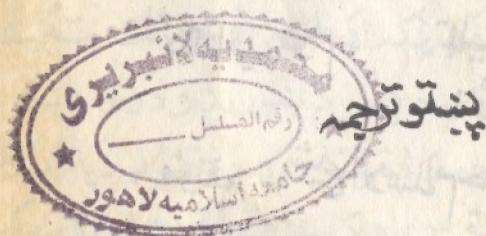 محمدیہ لائبریری
رقم المسلسل
جامعہ اسلامیہ لاہور
پښتو ترجمہ